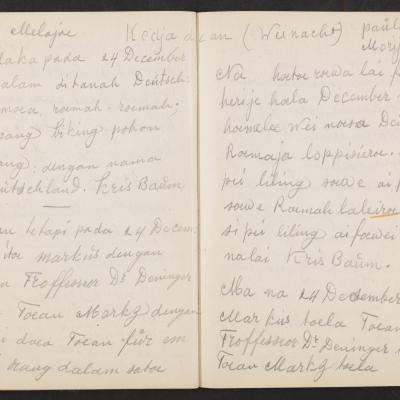 Melajoe Kedja dean (Weinacht)
daka pada 24 December
alam ditanah Deutsch-
moea, roemah-roemah;
sang biking pohon
ang: dengan nama
eutschland. Kris Baum
an tetapi pada 24 Decem
itoe markus dengan
n Froffessor Dr Deninger
Toean Markz dengan
n doea Toean für em
orang dalam satoe
paul
Mory
Na hatoe rowa lai
herije hoela December
hoemelee Wei noesa De
Roemaja loppisieroe.
püi liling sowe ai
sowe Roemah laleiroe
sipüi liling aifoewei
nalai Kris Baum.
Ma na 24 December
Markus hoela Toean
Froffessor Dr Deninger
Toean Markz hoela